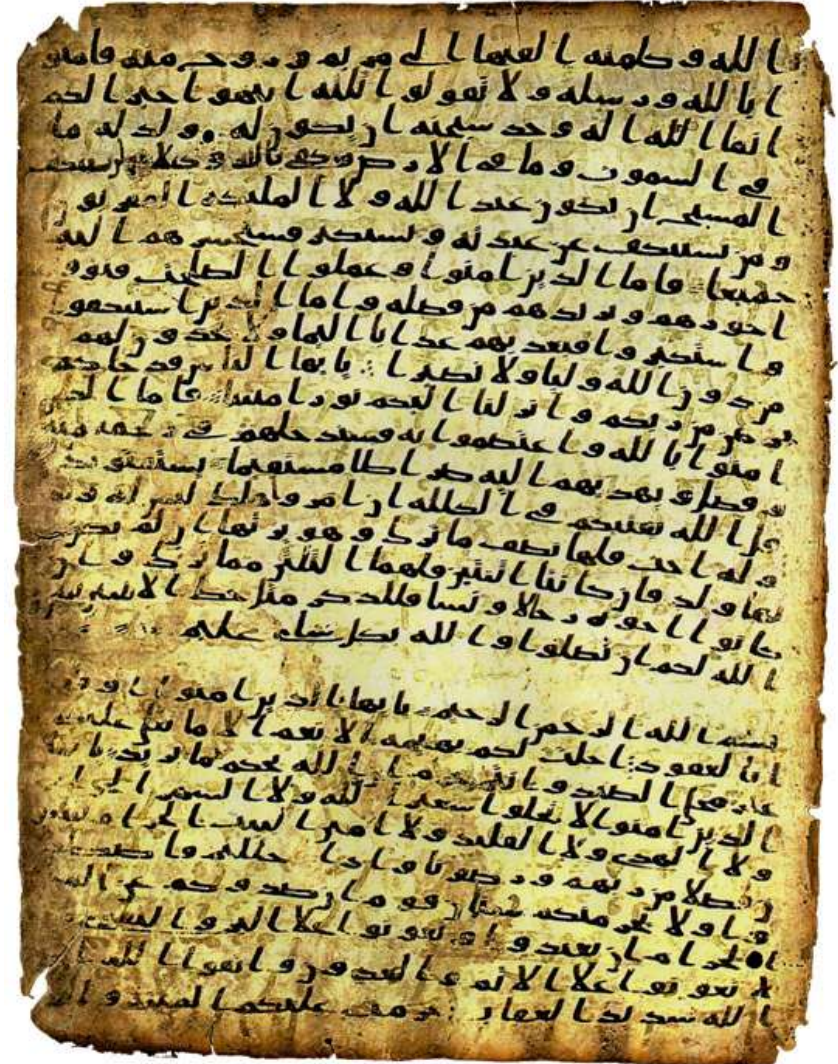 الله وكلمته القىها الى مريم وروح منه فامنو
ا بالله ورسله ولا تقولوا ثلثة انتهوا خيرا لكم
انما الله اله وحد سبحنه ان يكون له ولد له ما
في السموت وما في الارض وكفى بالله وكيلا لن يستنكف
المسيح ان يكون عبدا لله ولا الملئكة المقربون
ومن يستنكف عن عبدته ويستكبر فسيحشرهم اليه
جميعا فاما الذين امنوا وعملوا الصلحت فيوفيهم
اجورهم ويزيدهم من فضله واما الذين استنكفو
ا واستكبروا فيعذبهم عذابا اليما ولا يجدون لهم
من دون الله وليا ولا نصيرا يايها الناس قد جاكم
برهن من ربكم وانزلنا اليكم نورا مبينا فاما الذين
امنوا بالله واعتصموا به فسيدخلهم في رحمة منه
وفضل ويهديهم اليه صراطا مستقيما يستفتونك
قل الله يفتيكم في الكلله ان امرو هلك ليس له ولد
وله اخت فلها نصف ما ترك وهو يرثها ان لم يكن
لها ولد فان كانتا اثنتين فلهما الثلثن مما ترك وان
كانوا اخوة رجالا ونسا فللذكر مثل حظ الانثيين يبين
الله لكم ان تضلوا والله بكل شاي عليم
بسم الله الرحمن الرحيم يايها الذين امنوا اوفو
ا بالعقود احلت لكم بهيمة الانعم الا ما يتلى عليكم
غير محلي الصيد وانتم حرم ان الله يحكم ما يريد يايها
الذين امنوا لا تحلوا شعير الله ولا الشهر الحرام
ولا الهدي ولا القليد ولا امين البيت الحرام يبتغون
فضلا من ربهم ورضونا واذا حللتم فاصطدو
ا ولا يجرمنكم شنان قوم ان صدوكم عن المسجد
الحرام ان تعتدوا وتعونوا على البر والتقوى و
لا تعونوا على الاثم والعدون واتقوا الله ان
الله شديد العقاب حرمت عليكم الميتة والدم